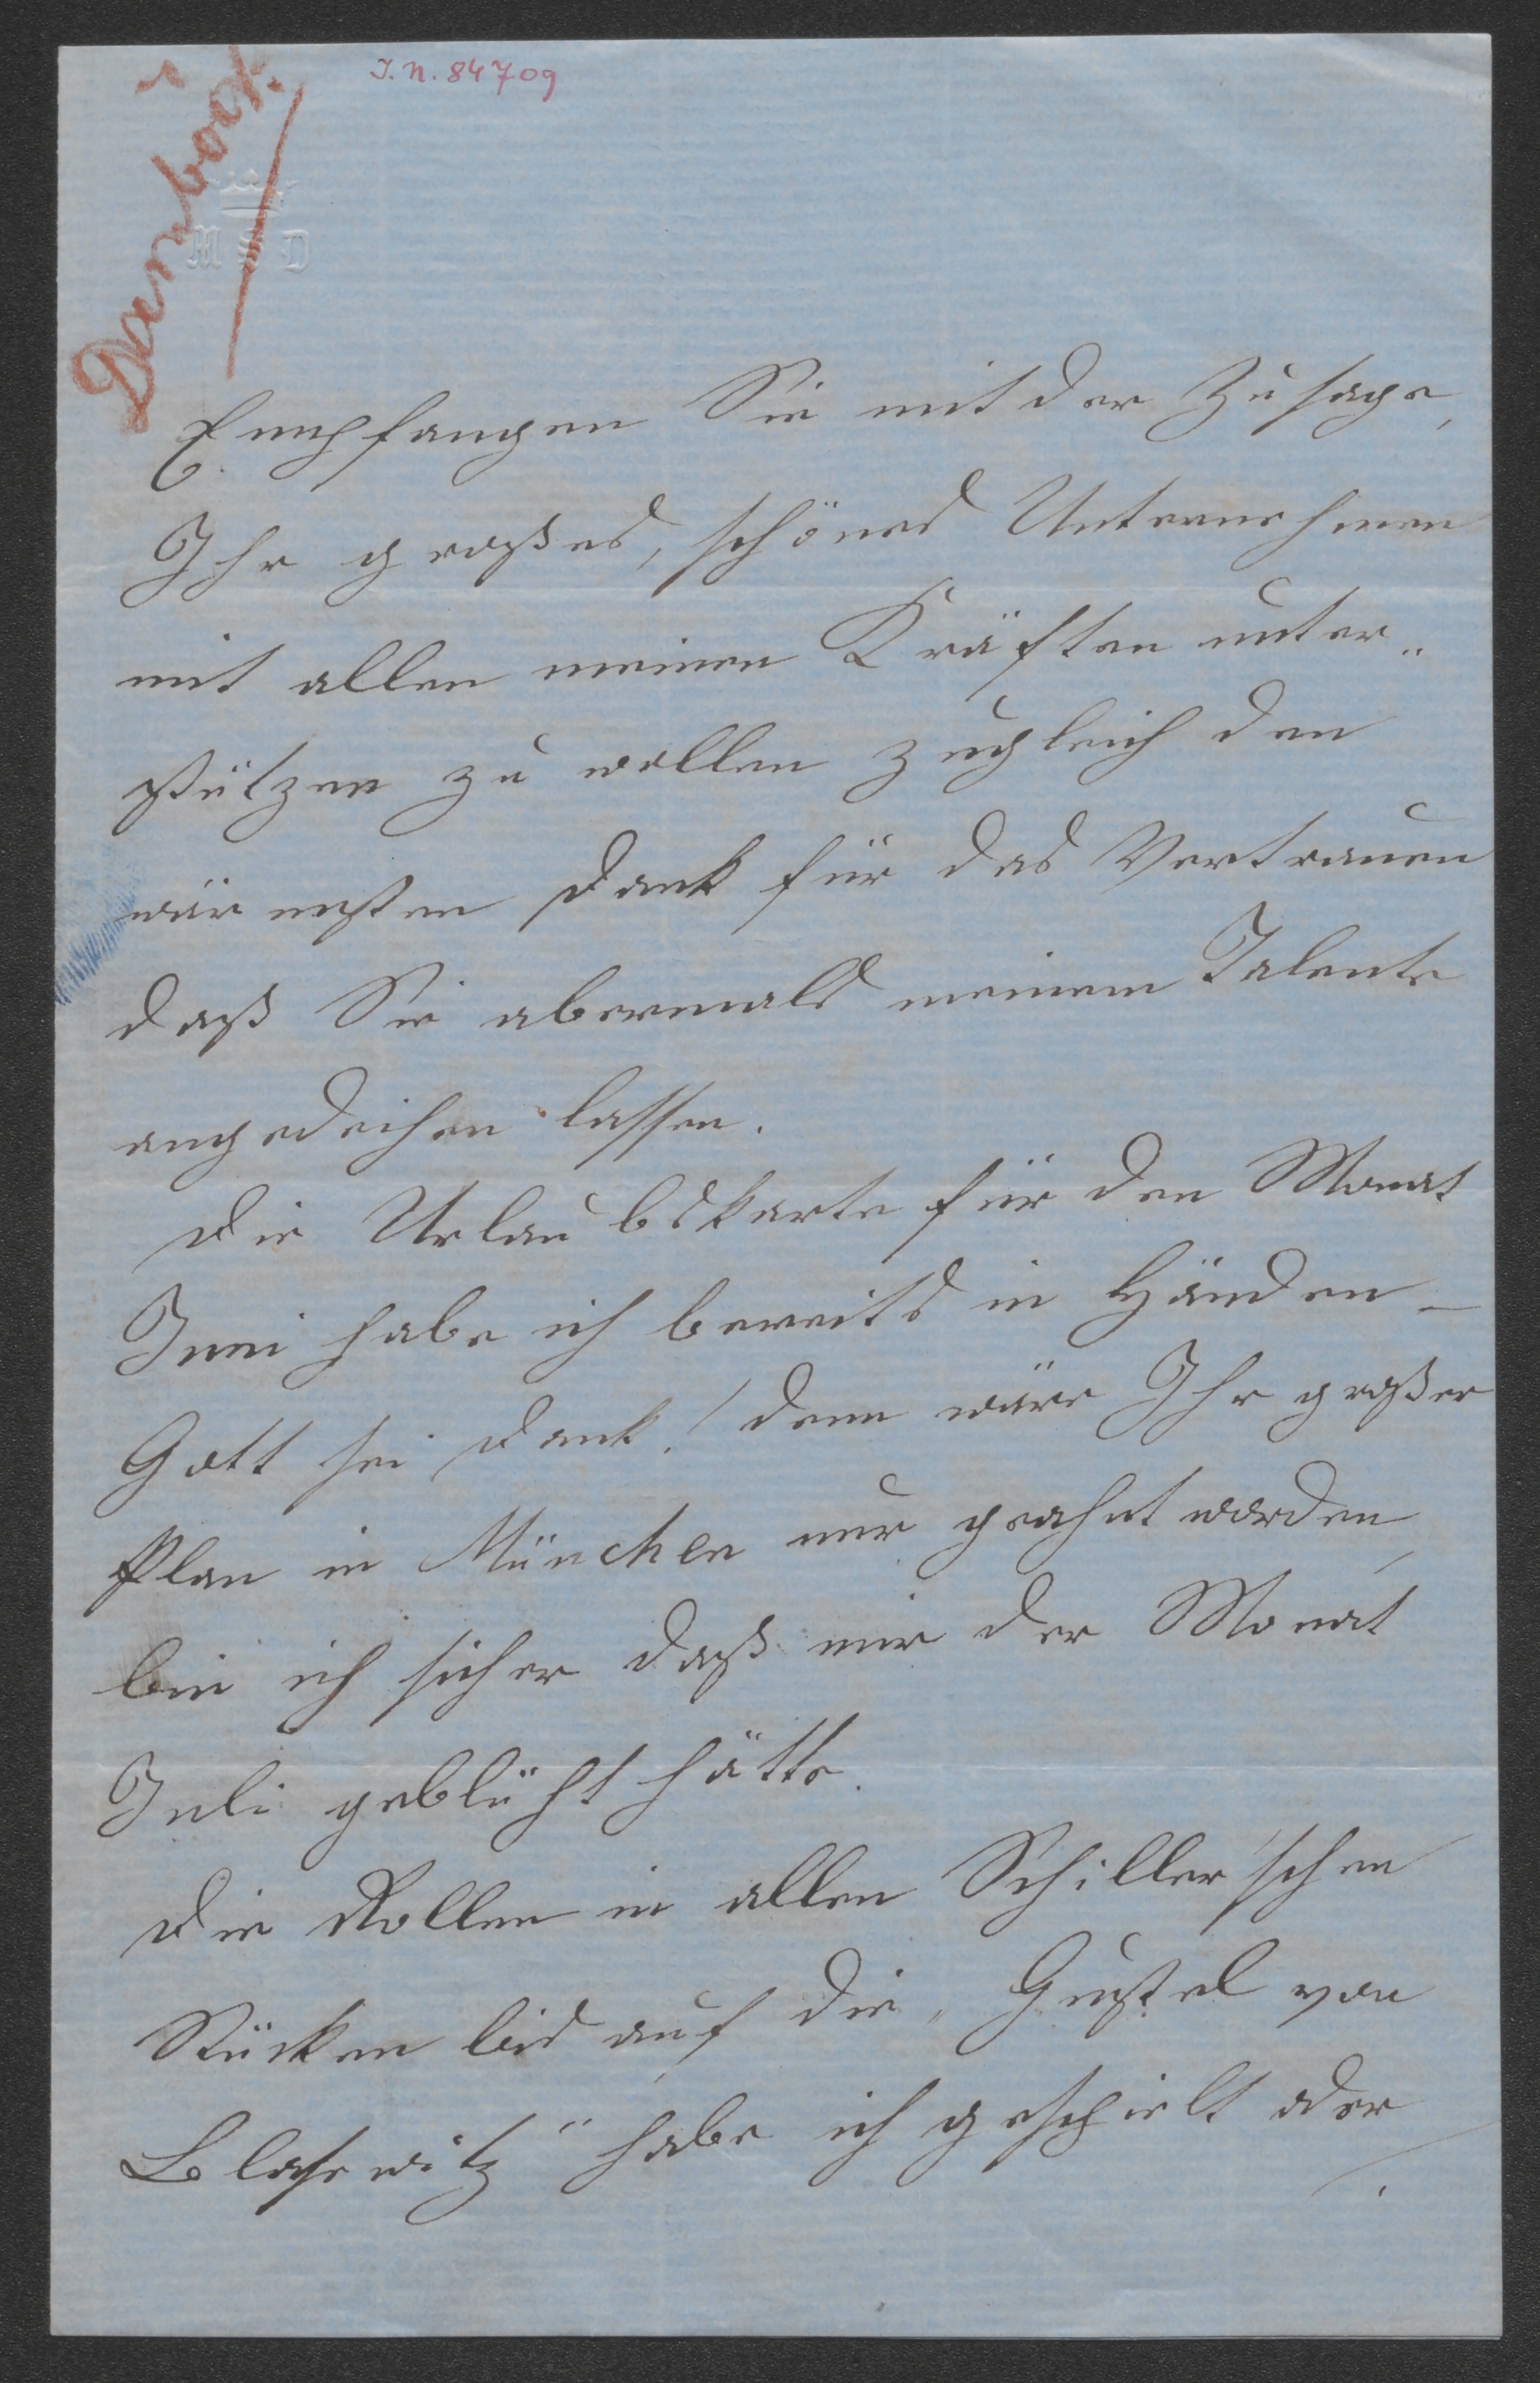 I.N. 84709
Dambök.
M S D
Empfangen Sie mit der Zusage,
Ihr großes, schönes Unternehmen
mit allen meinen Kräften unter„
stützen zu wollen zugleich den
wärmsten Dank für das Vertrauen
daß Sie abermals meinem Talente
angedeihen lassen.
Die Urlaubskarte für den Monat
Juni habe ich bereits in Händen –
Gott sei Dank! denn wäre Ihr großer
Plan in München nur geahnt worden,
bin ich sicher daß mir der Monat
Juli geblüht hätte.
Die Rollen in allen Schiller'schen
Stücken bis auf die „Gustel von
Blasewitz" habe ich gespielt oder